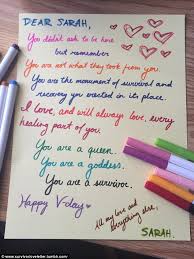 DEAR SARAH,
You didn't ask to be here
but remember
You are not what they took from you.
You are the monument of survival and
recovery you erected in its place.
I love, and will always love, every
healing part of you.
You are a queen.
You are a goddess.
You are a survivor.
Happy V-day!
All my love and
everything else,
SARAH.
© www.survivorloveletter.tumblr.com